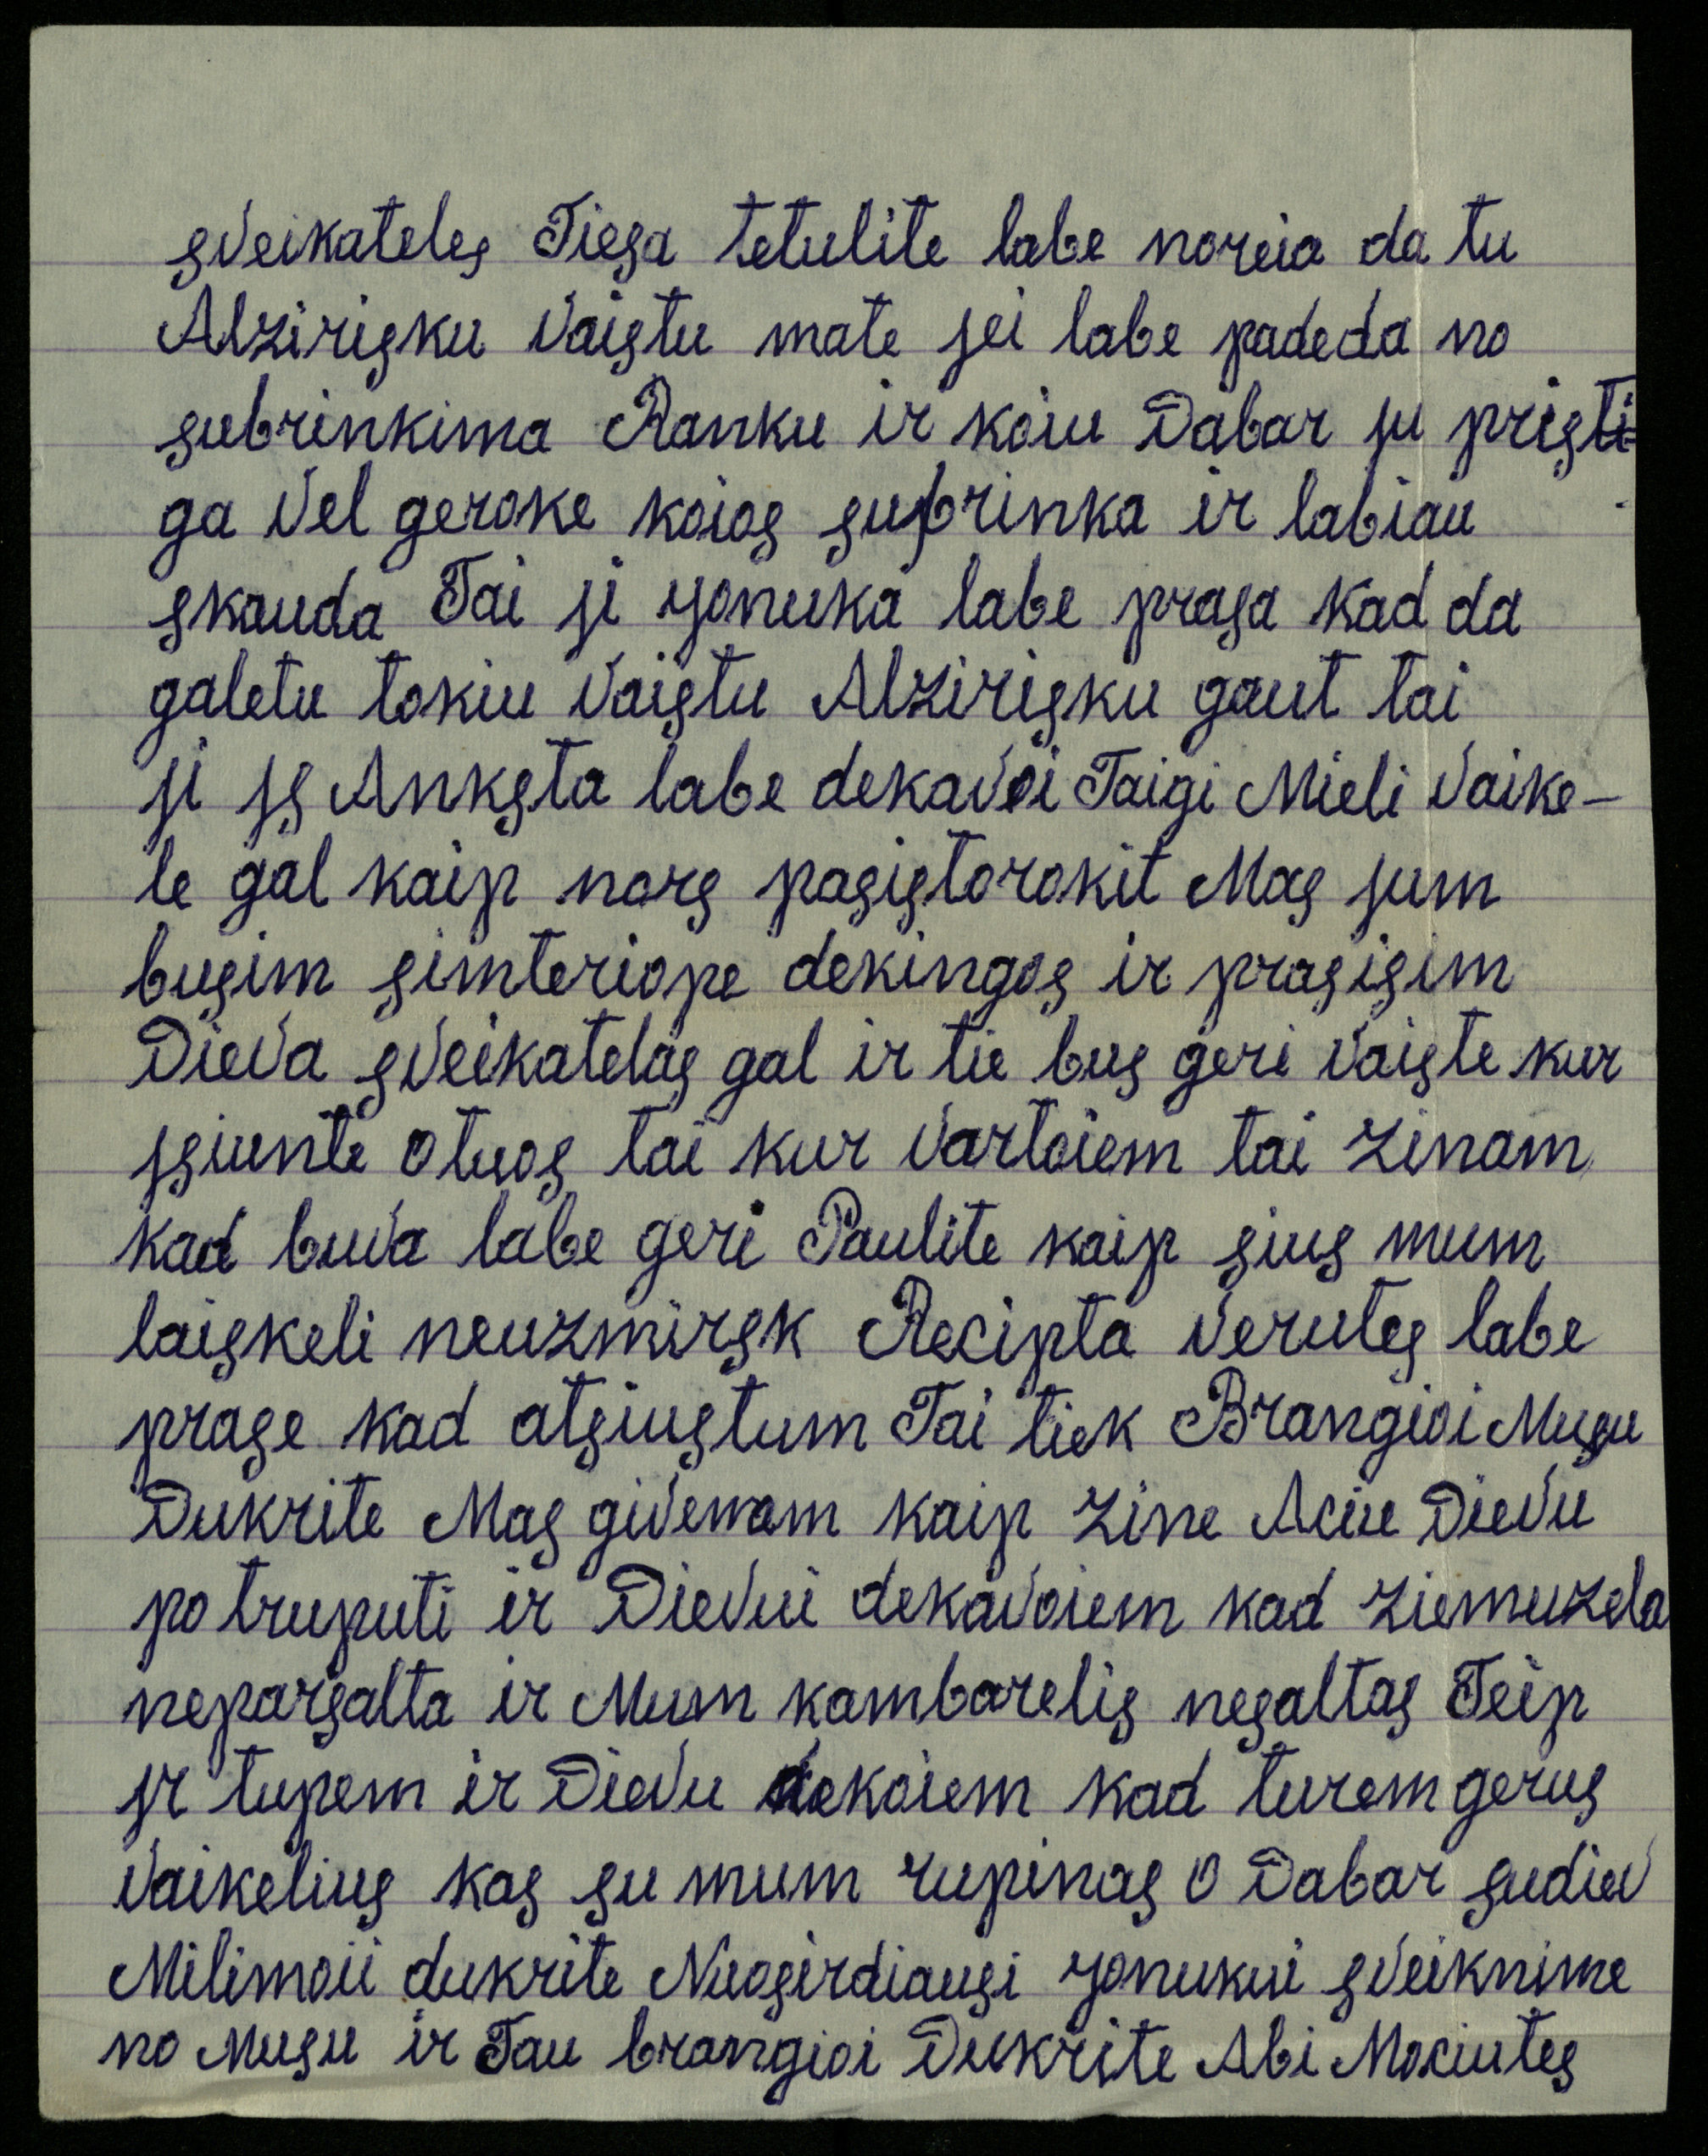 sveikateles Tiesa tetulite labe noreia da tu
Alzirisku vaistu mate jei labe padeda no
subrinkima Ranku ir koiu Dabar ju pristi=
ga vel geroke koios subrinka ir labiau
skauda Tai ji yonuka labe prasa kad da
galetu tokiu vaistu Alzirisku gaut tai
ji js Anksta labe dekavoi Taigi Mieli vaike-
le gal kaip nors pasistorokit Mas jum
busim simteriope dekingos ir prasisim
Dieva sveikatelas gal ir tie bus geri vaiste kur
jsiunte o tuos tai kur vartoiem tai zinam
kad buva labe geri Paulite kaip sius mum
laiskeli neuzmirsk Recipta verutes labe
prase kad atsiustum Tai tiek Brangioi Musu
Dukrite Mas givenam kaip zine Aciu Dievu
po truputi ir Dievui dekavoiem kad ziemuzela
neparsalta ir Mum kambarelis nesaltas Teip
jr tupem ir Dievu dekoiem kad turem gerus
vaikelius kas su mum rupinas o Dabar sudiev
Milimoii dukrite Nuosirdiausi yonukui sveiknime
no Musu ir Tau brangioi Dukrite Abi Mociutes